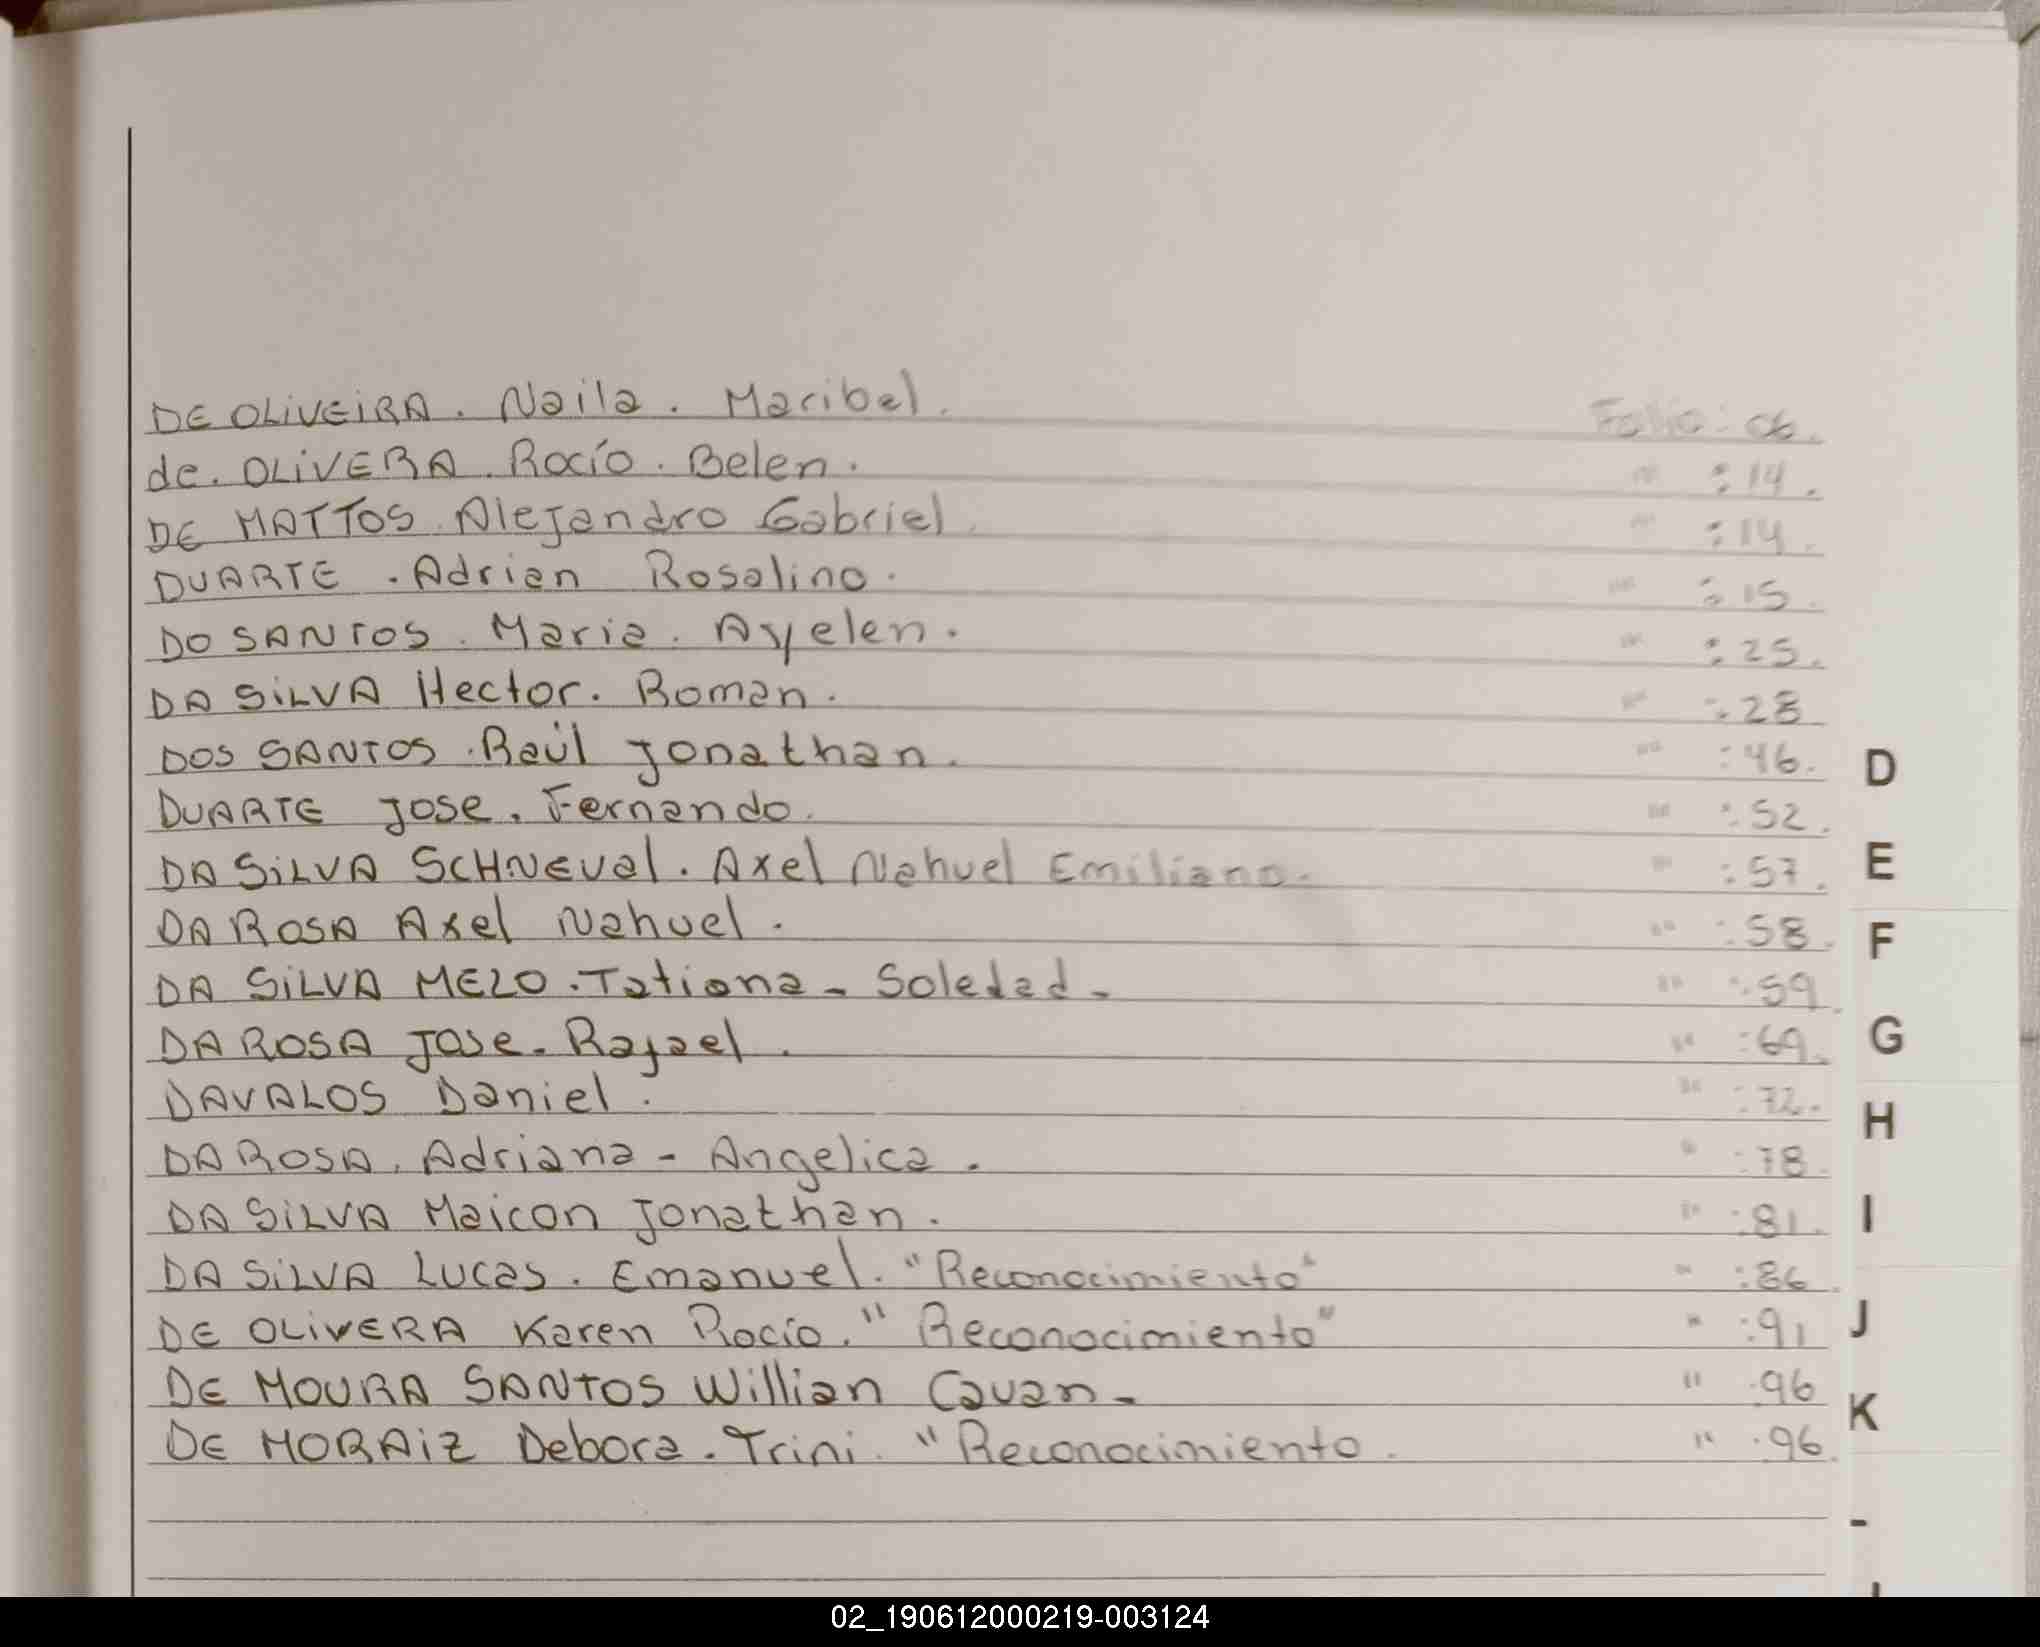 DE OLiVEiRA. Naila. Maribel. Folio: 06.
de. OLiVERA. Rocío. Belen. " :14.
DE MATTOS. Alejandro Gabriel. " :14.
DUARTE. Adrian Rosalino. " :15.
DO SANTOS. Maria. Ayelen. " :25.
DA SiLVA Hector. Roman. " :28
DOS SANTOS. Raúl Jonathan. " :46.
DUARTE Jose. Fernando. " :52.
DA SiLVA SCHNEVal. Axel Nahuel Emiliano. " :57.
DA ROSA Axel Nahuel. " :58.
DA SiLVA MELO. Tatiana - Soledad - " :59.
DA ROSA Jose. Rafael. " :69.
DAVALOS Daniel. " :72.
DA ROSA. Adriana - Angelica. " :78.
DA SiLVA Maicon Jonathan. " :81.
DA SiLVA Lucas. Emanuel. "Reconocimiento" " :86.
DE OLivERA Karen Rocío. "Reconocimiento" " :91
DE MOURA SANTOS Willian Cauan - " .96
DE MORAiZ Debora. Trini. "Reconocimiento. " .96.
D
E
F
G
H
I
J
K
-
02_190612000219-003124